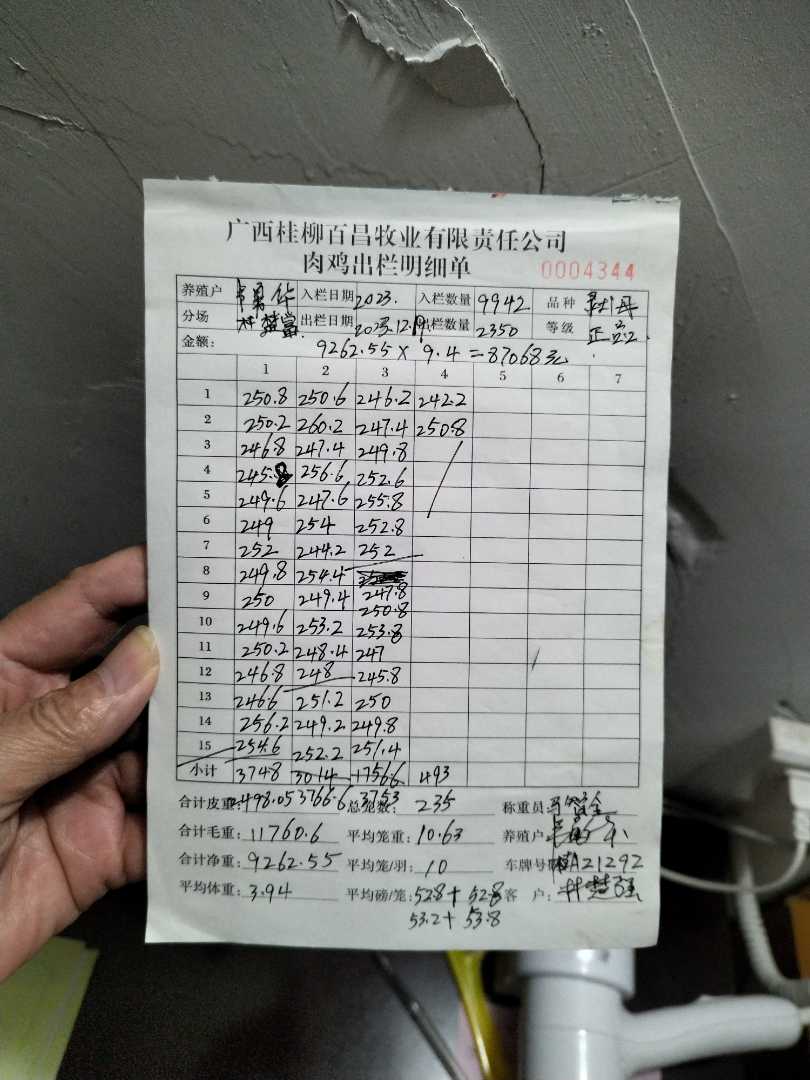 广西桂柳百昌牧业有限责任公司
肉鸡出栏明细单 0004344
养殖户 华 入栏日期 2023. 入栏数量 9942 品种
分场 出栏日期 2023.12.19 出栏数量 2350 等级 正
金额: 9262.55 × 9.4 = 87068元
1 2 3 4 5 6 7
1 250.8 250.6 246.2 242.2
2 250.2 260.2 247.4 250.8
3 246.8 247.4 249.8
4 245.8 256.6 252.6
5 249.6 247.6 255.8
6 249 254 252.8
7 252 244.2 252
8 249.8 254.4
9 250 249.4 247.8
250.8
10 249.6 253.2 253.8
11 250.2 248.4 247
12 246.8 248 245.8
13 246.6 251.2 250
14 256.2 249.2 249.8
15 254.6 252.2 251.4
小计 3748 3014 1756.6 493
合计皮重: 2498.05 3766.6 总笼数: 3753 235 称重员:
合计毛重: 11760.6 平均笼重: 10.63 养殖户:
合计净重: 9262.55 平均笼/羽: 10 车牌号: A21292
平均体重: 3.94 平均磅/笼: 52.8 + 52.8 客户:
53.2 + 53.8